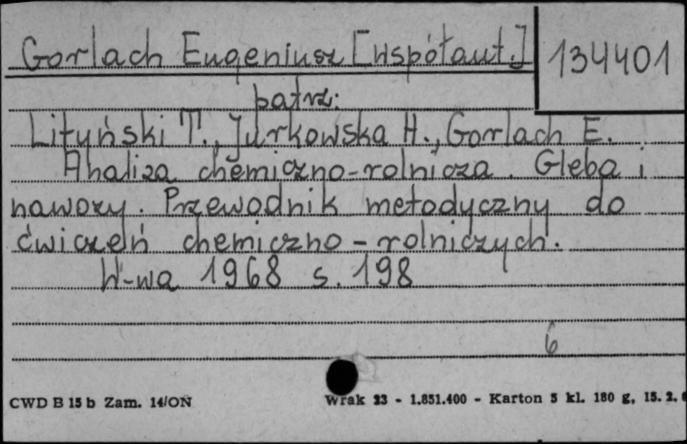 Gorlach Eugeniusz [współaut.]
134401
patrz:
Lityński T., Jurkowska H., Gorlach E.
Analiza chemiczno-rolnicza. Gleba i
nawozy. Przewodnik metodyczny do
ćwiczeń chemiczno-rolniczych.
W-wa 1968 s. 198
6
CWD B 15 b Zam. 14/ON Wrak 23 - 1.851.400 - Karton 5 kl. 180 g, 15. 2.